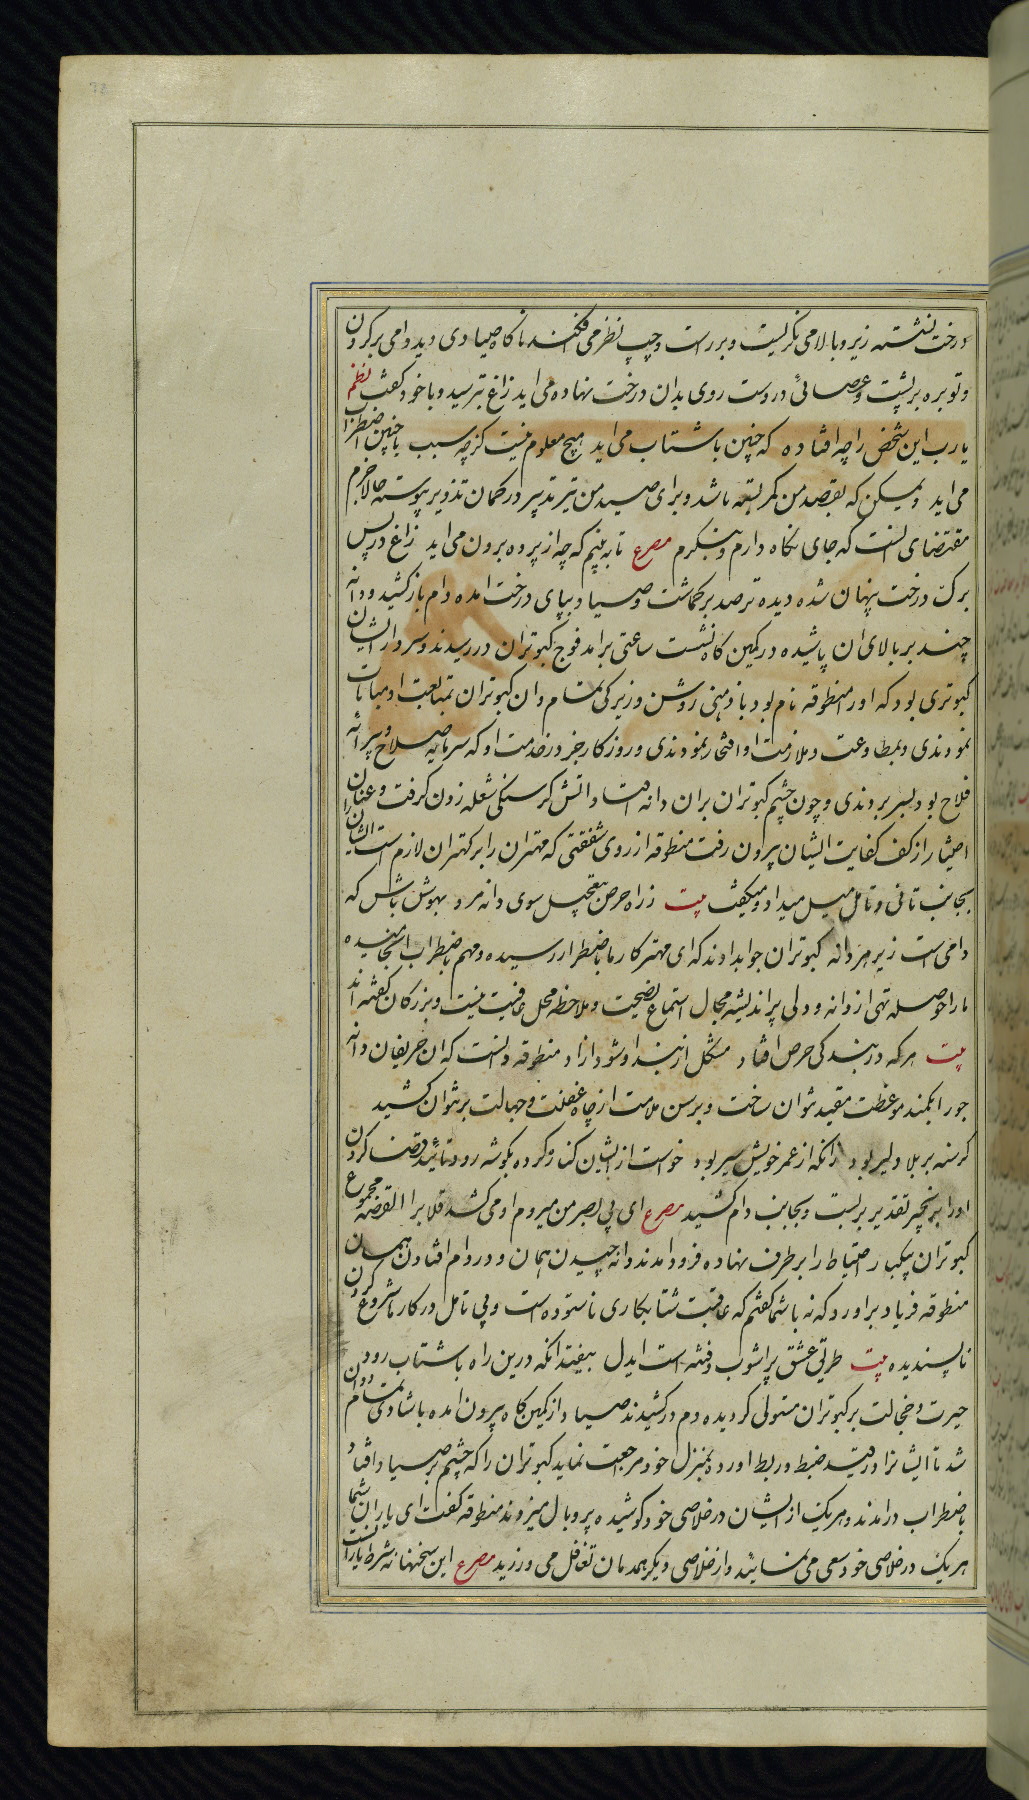 درخت نشسته زیر و بالا می نگریست و بر راست و چپ نظر می افکند ناکاه صیادی دید دامی بر کردن
و توبره بر پشت و عصائی در دست روی بدان درخت نهاده می اید زاغ بترسید و با خود کفت نظم
یارب این شخص را چه افتاده که چنین با شتاب می اید هیچ معلوم نیست کز چه سبب با چنین اضطراب
می اید و یمکن که بقصد من کمر بسته باشد و برای صید من تیر تدبیر در کمان تذویر پیوسته حالا حزم
مقتضای انست که جای نکاه دارم و بنکرم مصرع تا به بینم که چه از پرده برون می اید زاغ در پس
برک درخت پنهان شده دیده ترصد بر کماشت و صیاد بپای درخت امده دام باز کشید و دانه
چند بر بالای ان پاشیده در کمین کاه نشست ساعتی برامد فوج کبوتران در رسیدند و سردار ایشان
کبوتری بود که او را مطوقه نام بود با ذهنی روشن و زیرکی تمام و ان کبوتران بمتابعت او مباهات
نمودندی و بمطاوعت و ملازمت او افتخار نمودندی و روزکار جز در خدمت او که سرمایه صلاح و پیرائه
فلاح بود بسر نبردندی و چون چشم کبوتران بران دانه افتاد اتش کرسنکی شعله زدن کرفت و عنان
اختیار از کف کفایت ایشان بیرون رفت مطوقه از روی شفقتی که مهتران را بر کهتران لازم است ایشان را
بجانب تانی و تامل میل میداد و میکفت بیت ز راه حرص بتعجیل سوی دانه مرو بهوش باش که
دامی است زیر هر دانه کبوتران جواب دادند که ای مهتر کار ما باضطرار رسیده و مهم باضطراب انجامیده
ما را حوصله تهی از دانه و دلی پر اندیشه مجال استماع نصیحت و ملاحظه محل عاقبت نیست و بزرکان کفته اند
بیت هر که در بند کی حرص افتاد مشکل از بند او شود ازاد مطوقه دانست که ان حریفان دانه
جو را بکمند موعظت مقید نتوان ساخت و برسن ملامت از چاه غفلت و جهالت بر نتوان کشید
کرسنه بر بلا دلیر بود زانکه از عمر خویش سیر بود خواست از ایشان کناره کرده بکوشه رود قائد قضا کردن
او را بزنجیر تقدیر بربست و بجانب دام کشید مصرع ای بی بصر من میروم او می کشد قلاب را القصه مجموع
کبوتران بیکبار احتیاط را بر طرف نهاده فرود امدند دانه چیدن همان و در دام افتادن همان
مطوقه فریاد براورد که نه با شما کفتم که عاقبت شتابکاری ناستوده است و بی تامل در کارها شروع کردن
ناپسندیده بیت طریق عشق پراشوب و فتنه است ایدل بیفتد انکه درین راه با شتاب رود
حیرت و خجالت بر کبوتران مستولی کردیده دم در کشیدند صیاد از کمین کاه بیرون امده با شادی تمام دوان
شد تا ایشانرا در قید ضبط و ربط اورده بمنزل خود مراجعت نماید کبوتران را که چشم بر صیاد افتاد
باضطراب درامدند و هر یک از ایشان در خلاصی خود کوشیده پر و بال میزدند مطوقه کفت ای یاران شما
هر یک در خلاصی خود سعی می نمایید و از خلاصی دیکر همدمان تغافل می ورزید مصرع این سخنها نه شرط یاران است